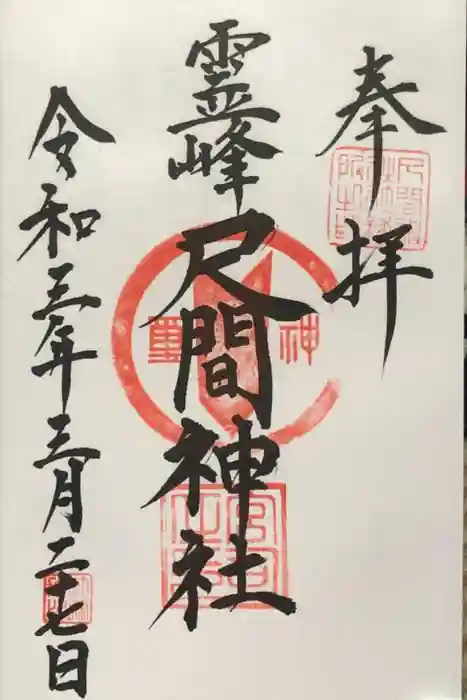 奉拝
霊峰
尺間神社
神璽
令和三年三月二十七日